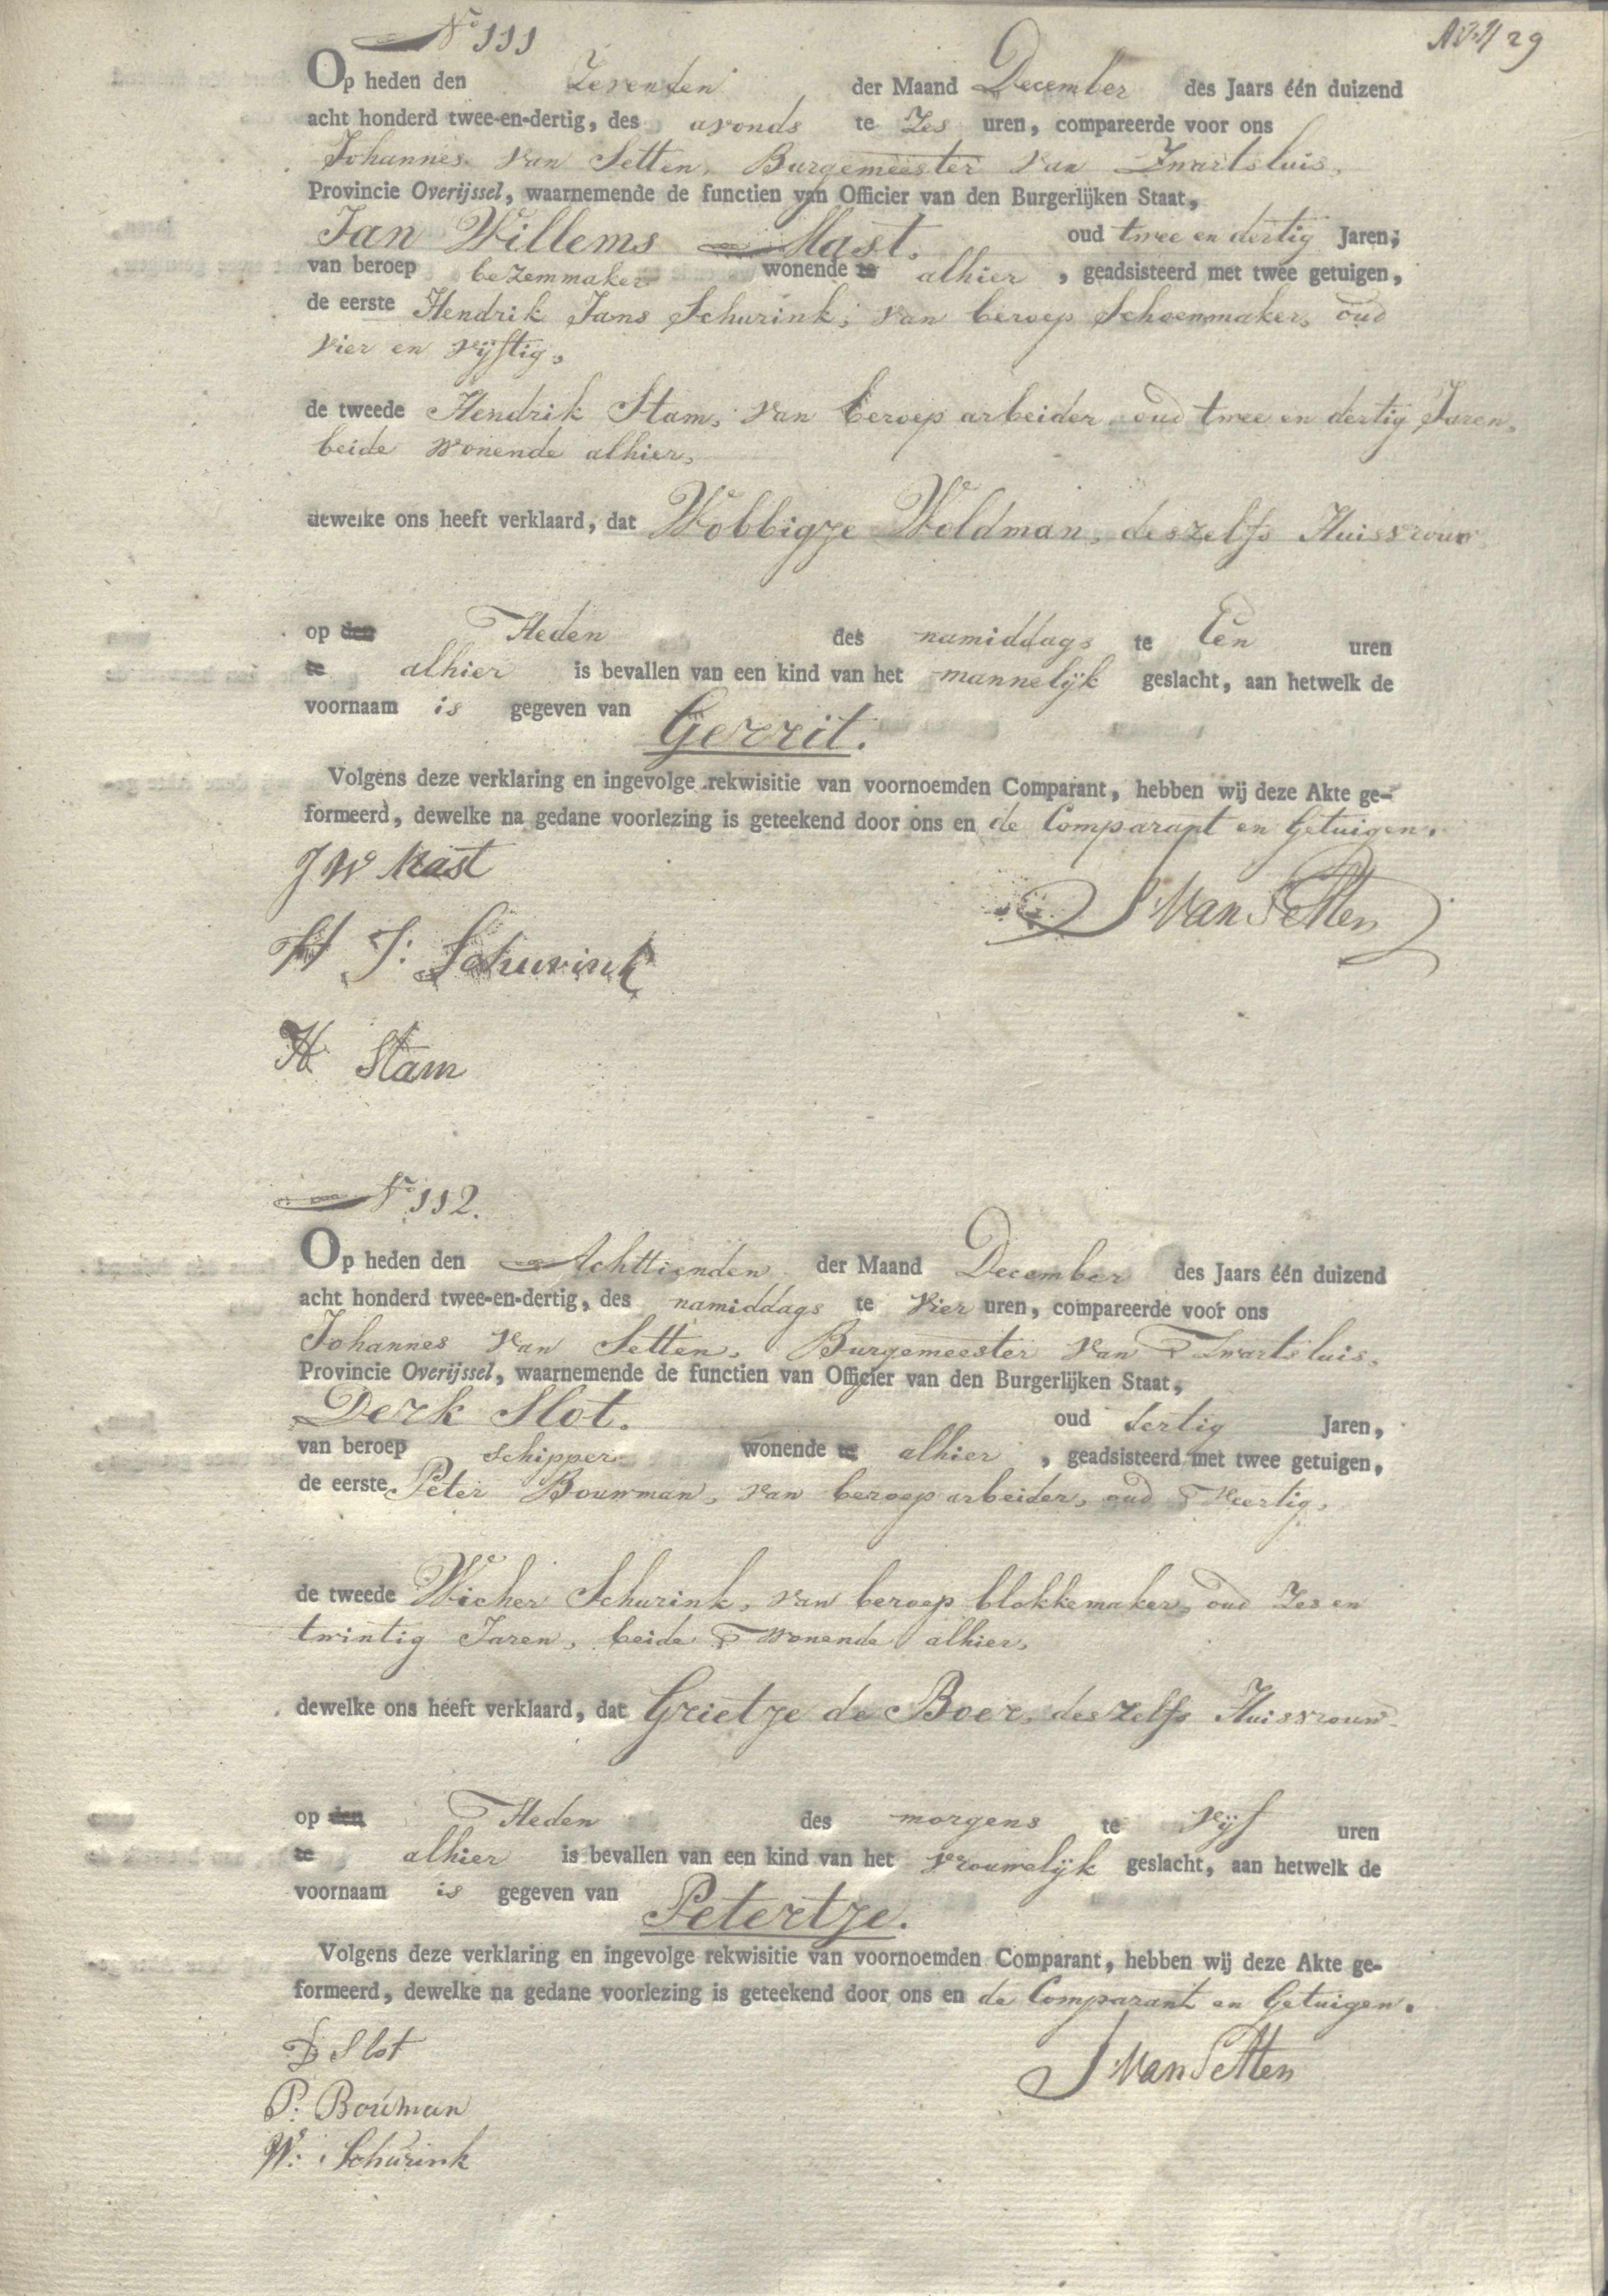 N° 111
29
Op heden den Zevenden der Maand December des Jaars één duizend
acht honderd twee-en-dertig, des avonds te Zes uren, compareerde voor ons
Johannes van Setten, Burgemeester van Zwartsluis,
Provincie Overijssel, waarnemende de functien van Officier van den Burgerlijken Staat,
Jan Willems Mast. oud twee en dertig Jaren,
van beroep bezemmaker wonende te alhier, geadsisteerd met twee getuigen,
de eerste Hendrik Jans Schurink, van beroep Schoenmaker, oud
vier en vijftig,
de tweede Hendrik Stam, van beroep arbeider oud twee en dertig Jaren,
beide wonende alhier,
dewelke ons heeft verklaard, dat Wobbigje Woldman, deszelfs Huisvrouw
op den Heden des namiddags te Een uren
te alhier is bevallen van een kind van het mannelijk geslacht, aan hetwelk de
voornaam is gegeven van Gerrit.
Volgens deze verklaring en ingevolge rekwisitie van voornoemden Comparant, hebben wij deze Akte ge-
formeerd, dewelke na gedane voorlezing is geteekend door ons en de Comparant en Getuigen.
J W Mast
J Van Setten
H J: Schurink
H Stam
N° 112.
Op heden den Achttienden der Maand December des Jaars één duizend
acht honderd twee-en-dertig, des namiddags te vier uren, compareerde voor ons
Johannes van Setten, Burgemeester van Zwartsluis,
Provincie Overijssel, waarnemende de functien van Officier van den Burgerlijken Staat,
Derk Slot. oud dertig Jaren,
van beroep schipper wonende te alhier, geadsisteerd met twee getuigen,
de eerste Peter Bouwman, van beroep arbeider, oud veertig,
de tweede Wicher Schurink, van beroep blokkemaker, oud Zes en
twintig Jaren, beide wonende alhier,
dewelke ons heeft verklaard, dat Grietje de Boer, deszelfs Huisvrouw
op den Heden des morgens te vijf uren
te alhier is bevallen van een kind van het vrouwelijk geslacht, aan hetwelk de
voornaam is gegeven van Petertje.
Volgens deze verklaring en ingevolge rekwisitie van voornoemden Comparant, hebben wij deze Akte ge-
formeerd, dewelke na gedane voorlezing is geteekend door ons en de Comparant en Getuigen.
D Slot
J Van Setten
P: Bouman
W: Schurink